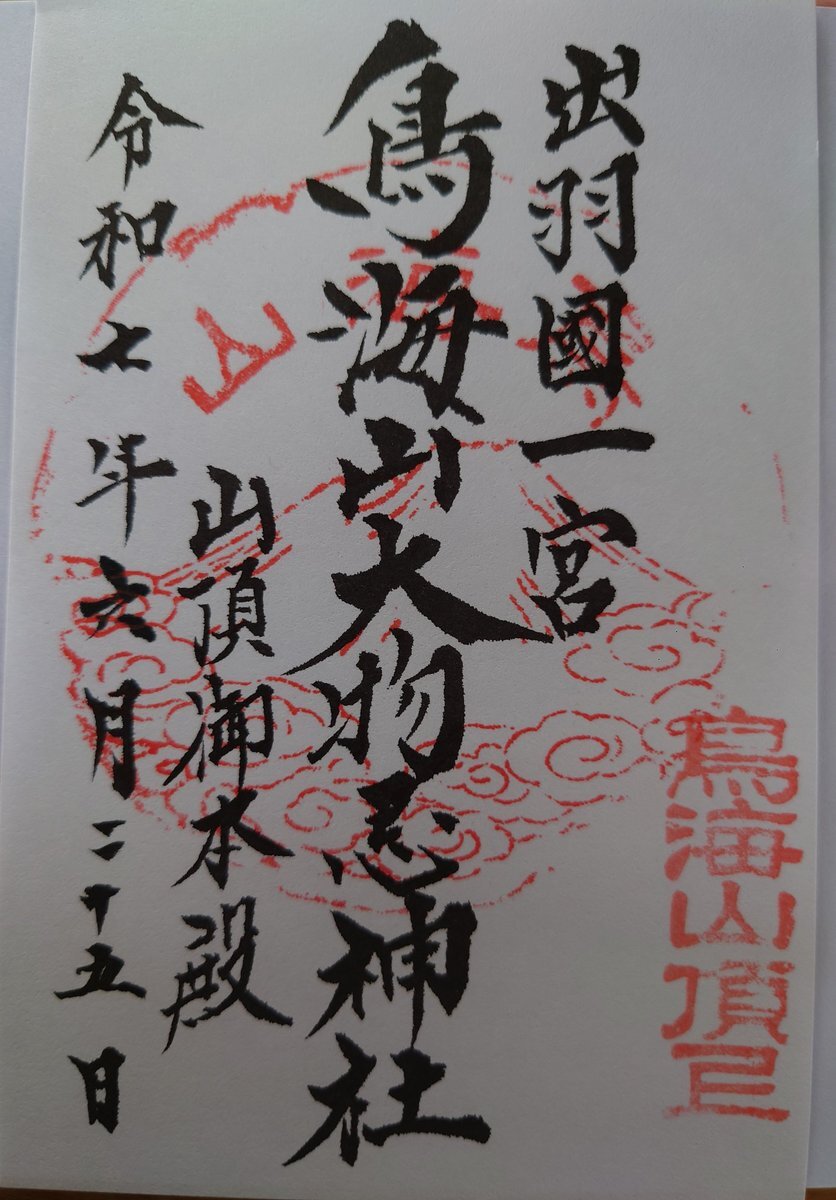 出羽國一宮
鳥海山大物忌神社
山頂御本殿
令和七年六月二十五日
鳥海山頂